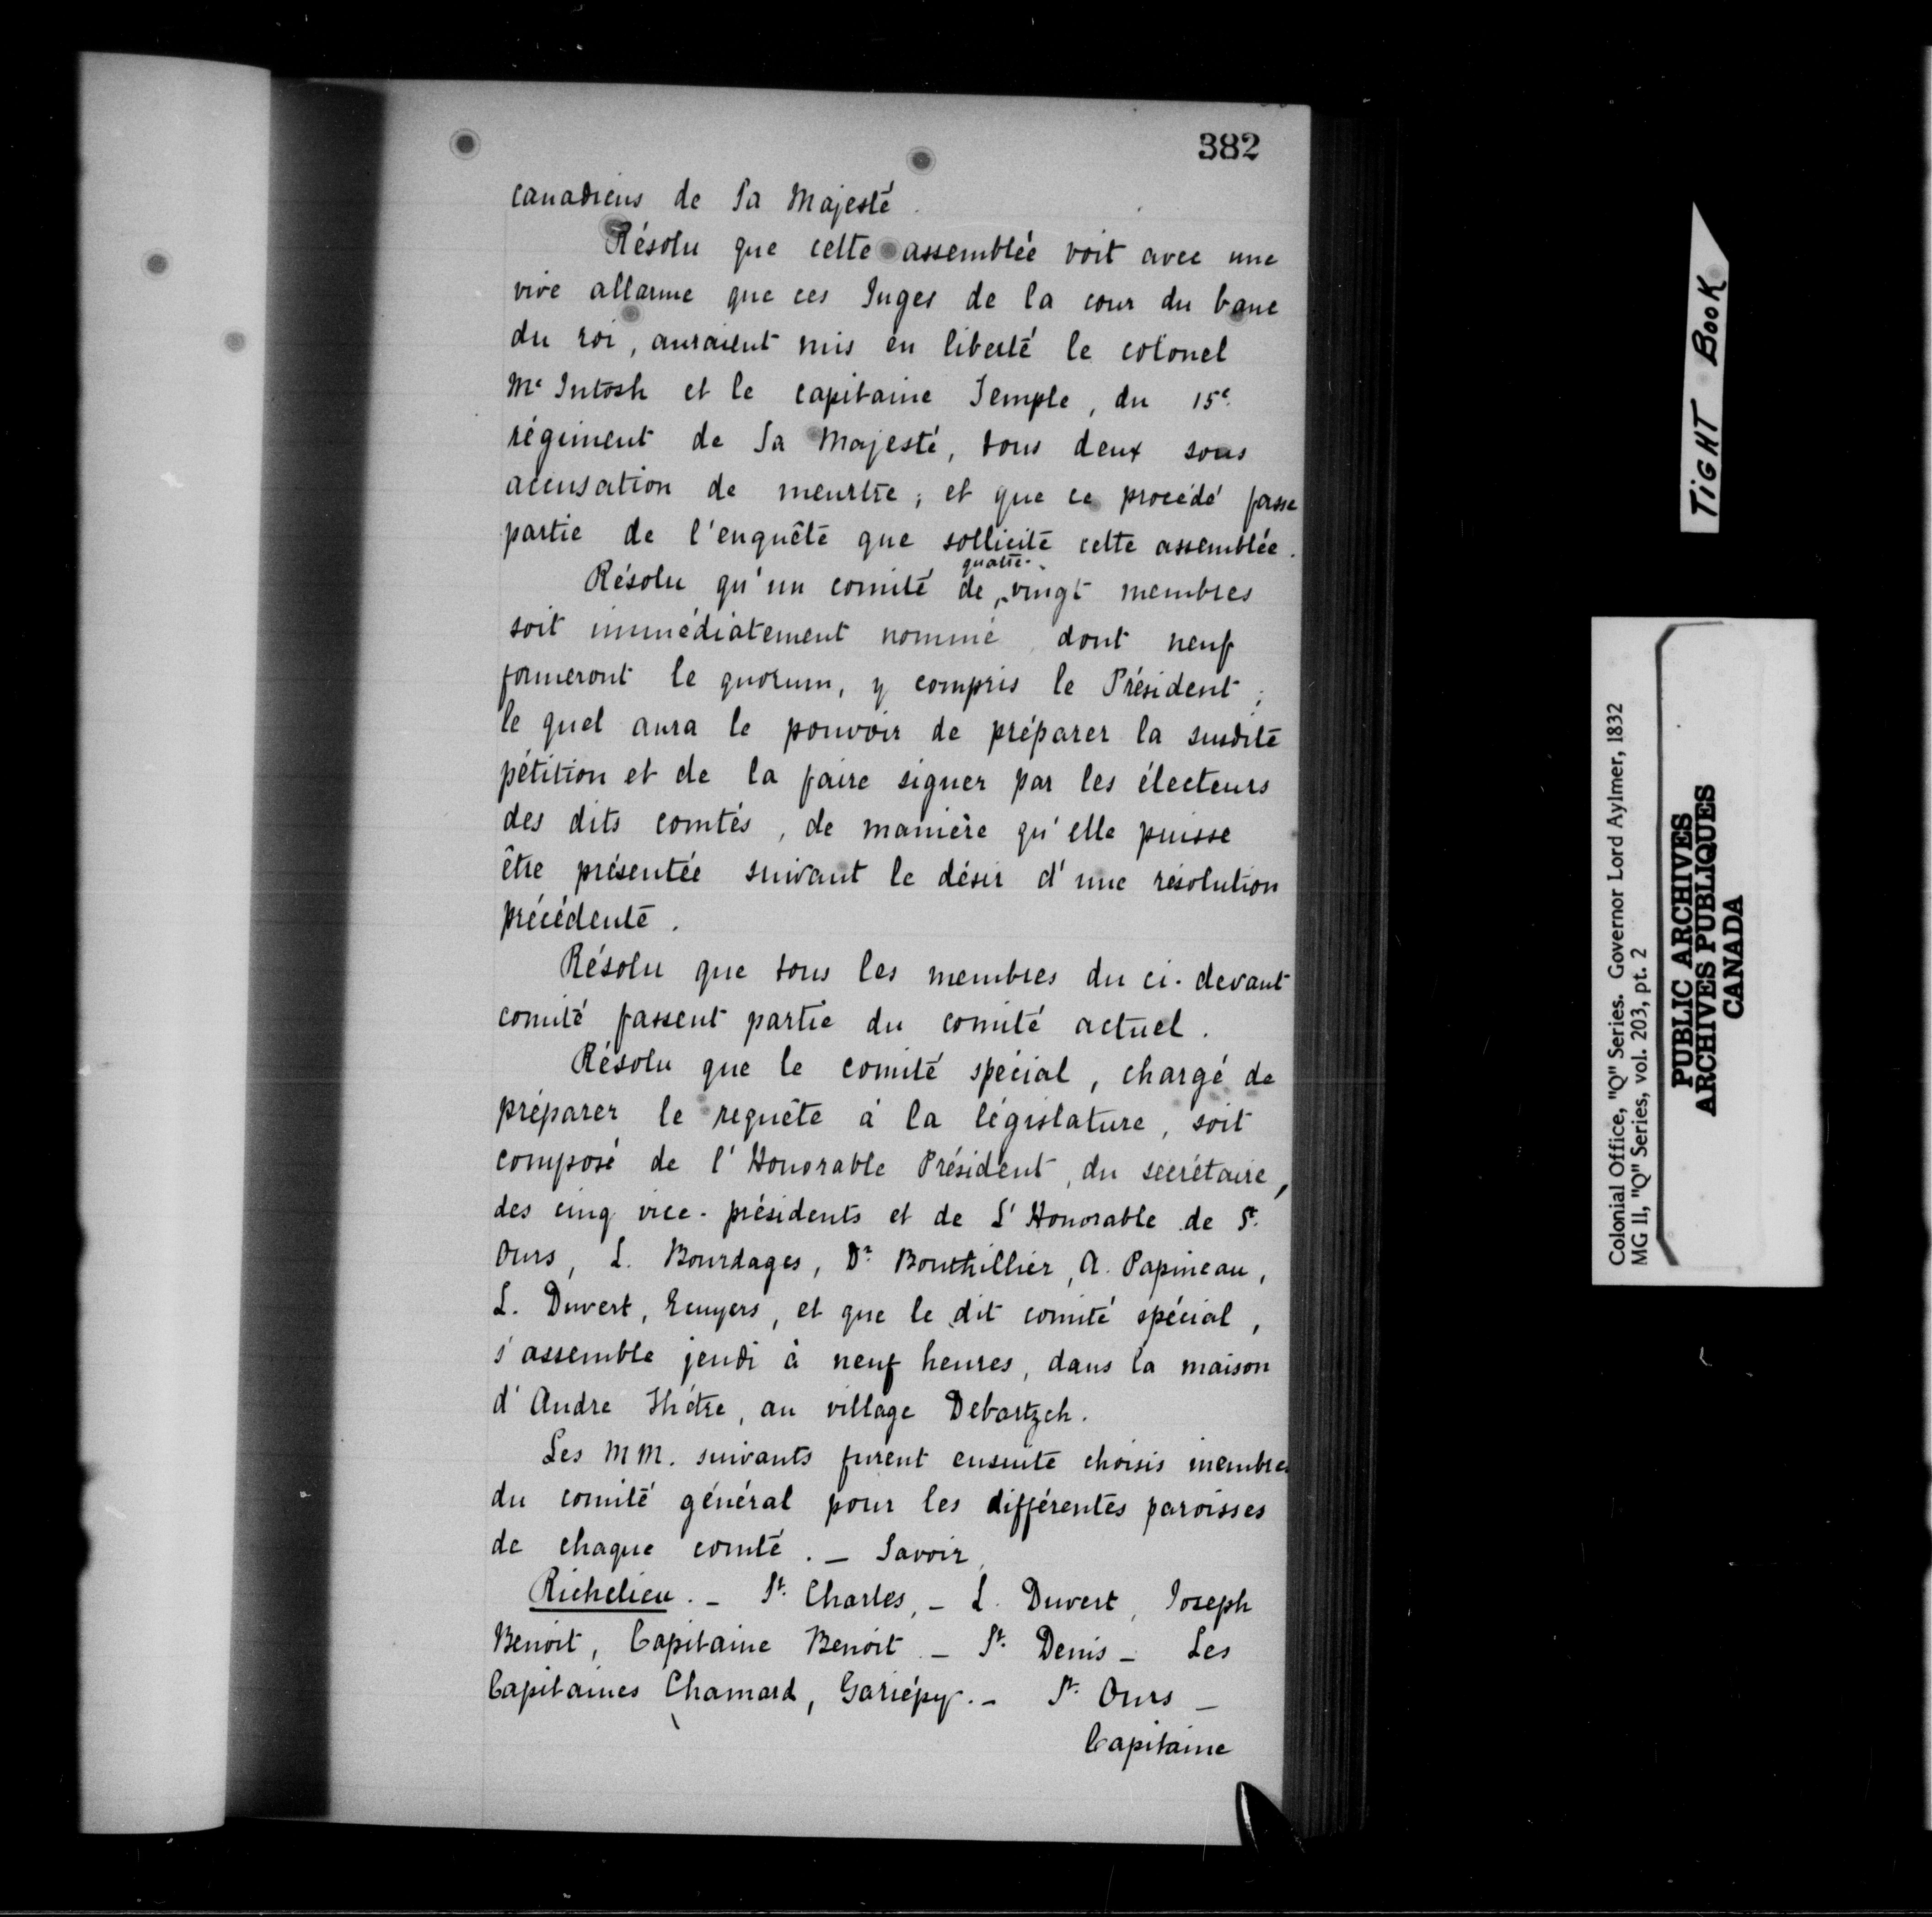 382
canadiens de Sa Majesté.
Résolu que cette assemblée voit avec une
vive allarme que ces Juges de la cour du banc
du roi, auraient mis en liberté le colonel
Mc Intosh et le capitaine Temple, du 15e
régiment de Sa Majesté, tous deux sous
accusation de meurtre; et que ce procédé fasse
partie de l'enquête que sollicite cette assemblée.
Résolu qu'un comité de quatre-vingt membres
soit immédiatement nommé, dont neuf
formeront le quorum, y compris le Président;
le quel aura le pouvoir de préparer la susdite
pétition et de la faire signer par les électeurs
des dits comtés, de manière qu'elle puisse
être présentée suivant le désir d'une résolution
précédente.
Résolu que tous les membres du ci-devant
comité fassent partie du comité actuel.
Résolu que le comité spécial, chargé de
préparer le requête à la législature, soit
composé de l'Honorable Président, du secrétaire,
des cinq vice-présidents et de L'Honorable de St.
Ours, L. Bourdages, Dr Bouthillier, A. Papineau,
L. Duvert, Ecuyers, et que le dit comité spécial,
s'assemble jeudi à neuf heures, dans la maison
d'Andre Hétre, au village Debartzch.
Les MM. suivants furent ensuite choisis membres
du comité général pour les différentes paroisses
de chaque comté. – Savoir,
Richelieu. – St. Charles, – L. Duvert, Joseph
Benoit, Capitaine Benoit – St. Denis – Les
Capitaines Chamard, Gariépy. – St. Ours –
Capitaine
TIGHT BOOK
Colonial Office, "Q" Series. Governor Lord Aylmer, 1832
MG 11, "Q" Series, vol. 203, pt. 2
PUBLIC ARCHIVES
ARCHIVES PUBLIQUES
CANADA